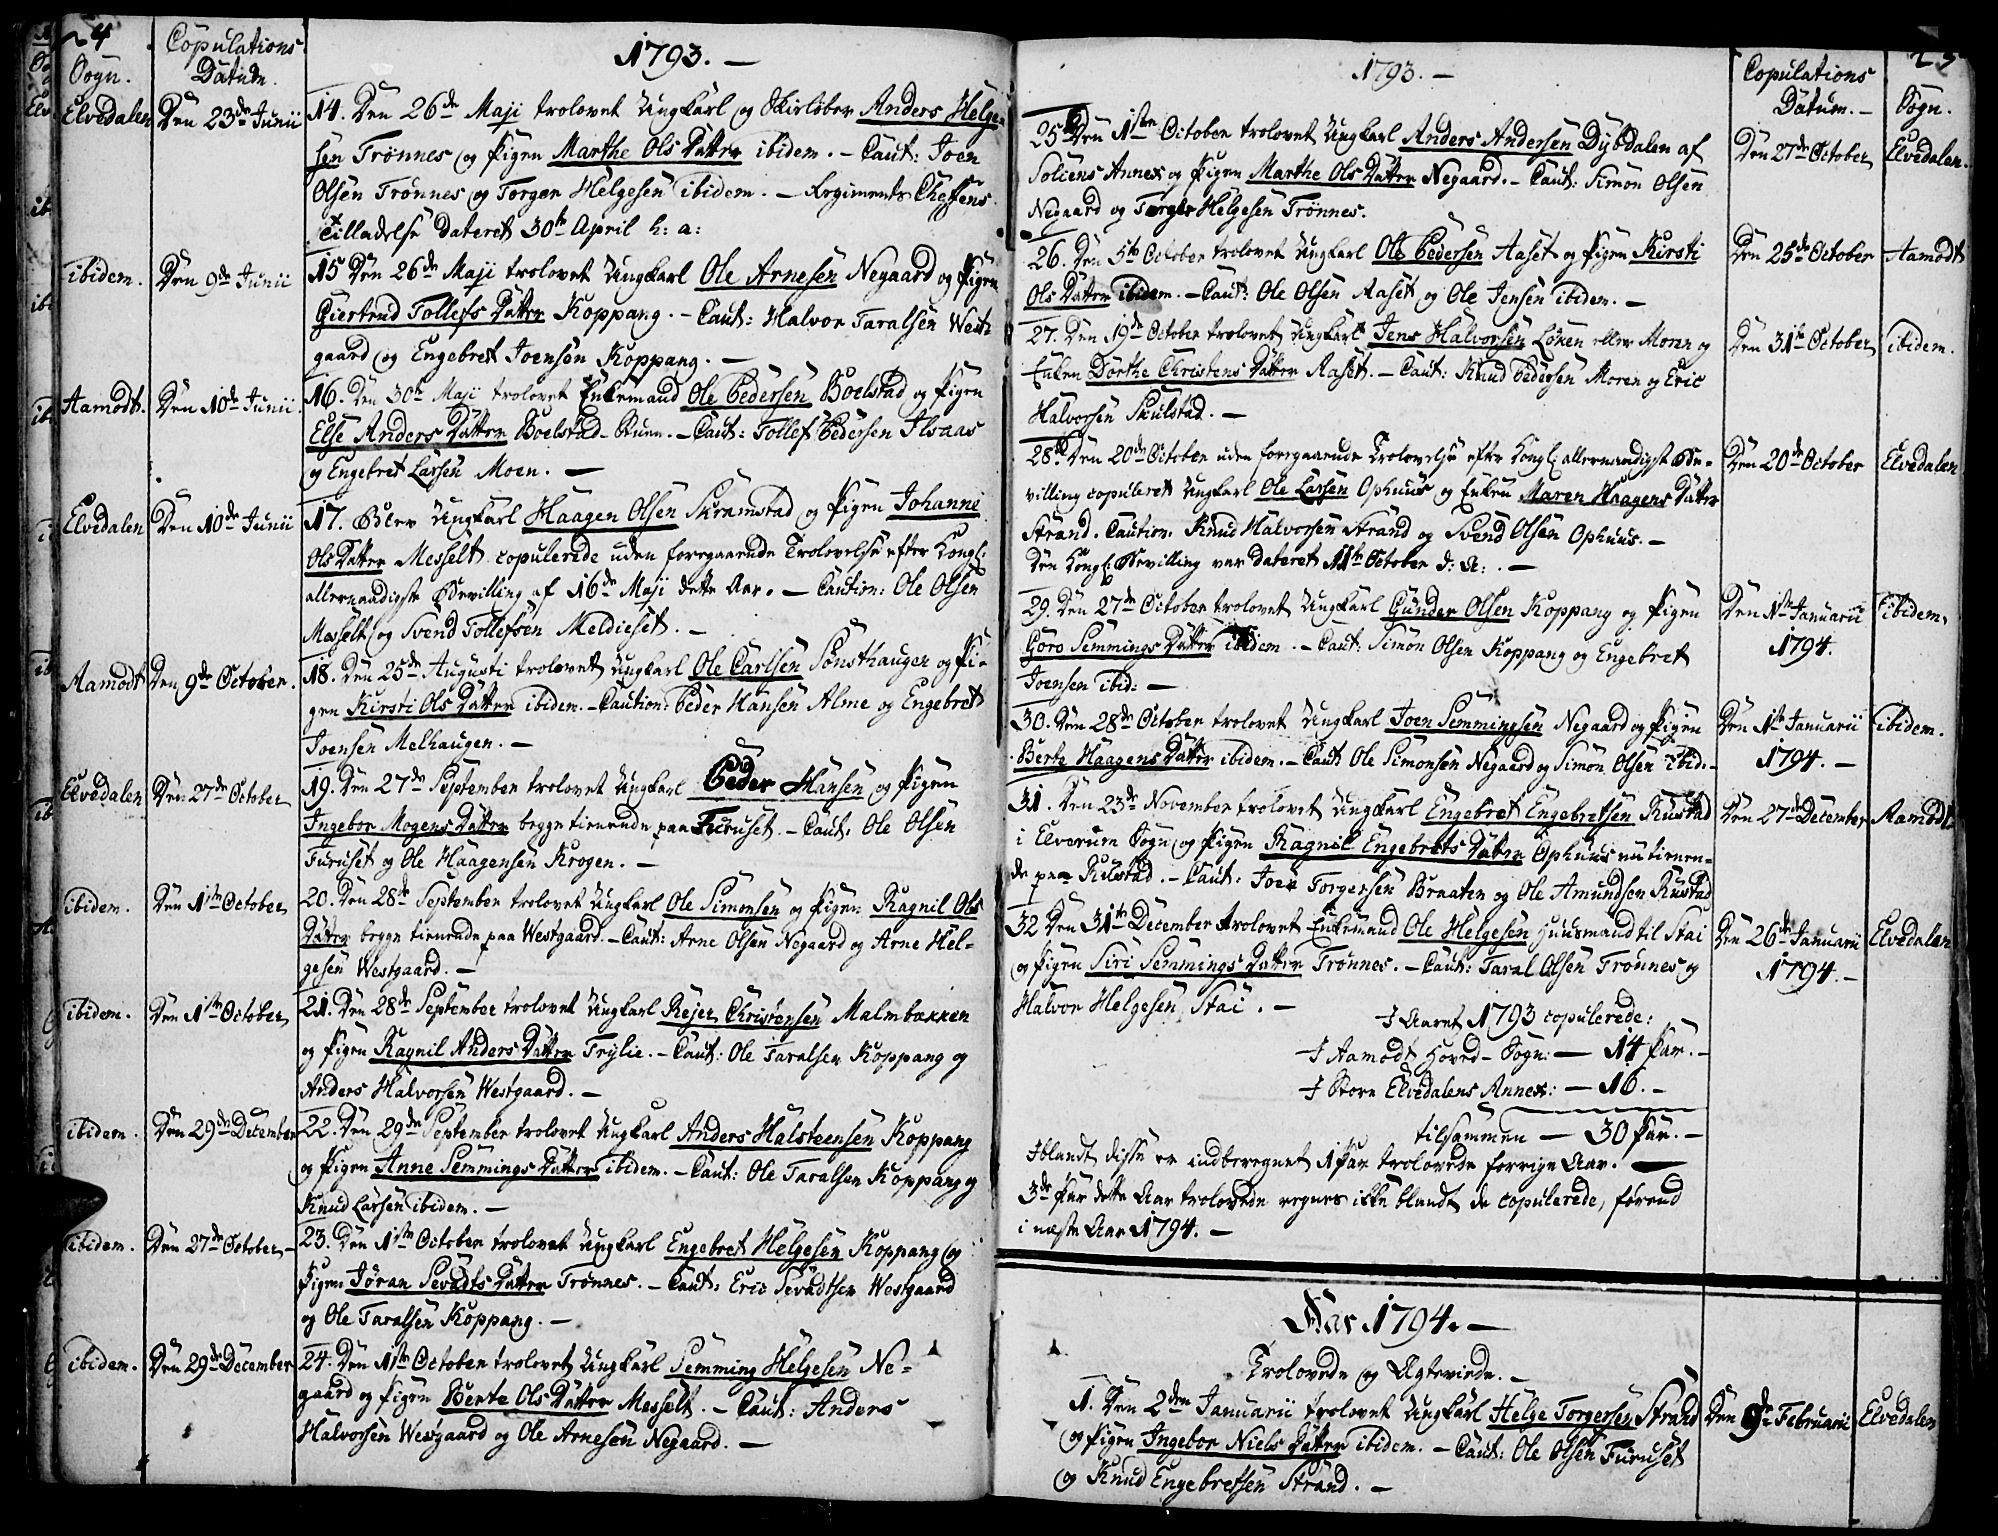 24
Sogn.
Copulations
Datum.
1793. —
Elvedalen
Den 23de Junii
14. Den 26de Maji trolovet Ungkarl og Skieløber Anders Helge-
sen Trønnes og Pigen Marthe Ols Datter ibidem. — Caut: Joen
Olsen Trønnes og Torger Helgesen ibidem. — Regiments Cheffens
Tilladelse dateret 30te April h: a:
ibidem.
Den 9de Junii
15 Den 26de Maji trolovet Ungkarl Ole Arnesen Negaard og Pigen
Giertrud Tollefs Datter Koppang. — Caut: Halvor Taralsen West-
gaard og Engebret Joensen Koppang. —
Aamodt.
Den 10de Junii.
16. Den 30te Maji trolovet Enkemand Ole Pedersen Boelstad og Pigen
Else Anders Datter Boelstad-Stuen. — Caut: Tollef Pedersen Ilsaas
og Engebret Larsen Moen. —
Elvedalen
Den 10de Junii
17. Blev Ungkarl Haagen Olsen Skramstad og Pigen Johanne
Ols Datter Messelt copulerede uden foregaaende Trolovelse efter Kongl:
allernaadigst Bevilling af 16de Maji dette Aar. — Caution: Ole Olsen
Messelt og Svend Tollefsen Meldieset. —
Aamodt
Den 9de October.
18. Den 25de Augusti trolovet Ungkarl Ole Carlsen Sønsthaugen og Pi-
gen Kirsti Ols Datter ibidem. — Caution: Peder Hansen Alme og Engebret
Joensen Melhaugen. —
Elvedalen
Den 27de October
19. Den 27de September trolovet Ungkarl Peder Hansen og Pigen
Ingebor Mogens Datter begge tienende paa Furuset. — Caut: Ole Olsen
Furuset og Ole Haagensen Krogen. —
ibidem.
Den 1ste October
20. Den 28de September trolovet Ungkarl Ole Simensen og Pigen Ragnil Ols
Datter begge tienende paa Westgaard. — Caut: Arne Olsen Negaard og Arne Hel-
gesen Westgaard. —
ibidem.
Den 1ste October
21. Den 28de September trolovet Ungkarl Rejer Christensen Malmbakken
og Pigen Ragnil Anders Datter Trylie. — Caut: Ole Taralsen Koppang og
Anders Halvorsen Westgaard. —
ibidem.
Den 29de December
22. Den 29de September trolovet Ungkarl Anders Halsteensen Koppang
og Pigen Anne Semmings Datter ibidem. — Caut: Ole Taralsen Koppang og
Knud Larsen ibidem. —
ibidem.
Den 27de October —
23. Den 1ste October trolovet Ungkarl Engebret Helgesen Koppang og
Pigen Jøran Sevadts Datter Trønnes. — Caut: Eric Sevadtsen Westgaard
og Ole Taralsen Koppang. —
ibidem.
Den 29de December
24. Den 1ste October trolovet Ungkarl Semming Helgesen Ne-
gaard og Pigen Berte Ols Datter Messelt. — Caut: Anders
Halvorsen Westgaard og Ole Arnesen Negaard. —
1793. —
Copulations
Datum. —
25
Sogn.
25 Den 1ste October trolovet Ungkarl Anders Andersen Dybdalen af
Soliens Annex og Pigen Marthe Ols Datter Negaard. — Caut: Simon Olsen
Negaard og Torger Helgesen Trønnes.
Den 27de October
Elvedalen.
26. Den 5te October trolovet Ungkarl Ole Pedersen Aaset og Pigen Kirsti
Ols Datter ibidem. — Caut: Ole Olsen Aaset og Ole Jensen ibidem. —
Den 25de October
Aamodt
27. Den 19de October trolovet Ungkarl Jens Halvorsen Løken eller Moren og
Enken Dorthe Christens Datter Aaset. — Caut: Knud Pedersen Moren og Eric
Halvorsen Skulstad. —
Den 31te October
ibidem.
28. Den 20de October uden foregaaende Trolovelse efter Kongl: allernaadigst Be-
villing copuleret Ungkarl Ole Larsen Ophuus og Enken Maren Haagens Datter
Strand. Caution. Knud Halvorsen Strand og Svend Olsen Ophuus. —
Den Kongl: Bevilling var dateret 11te October d: A: . —
Den 20de October
Elvedalen
29. Den 27de October trolovet Ungkarl Gunder Olsen Koppang og Pigen
Goro Semmings Datter ibidem. — Caut: Simon Olsen Koppang og Engebret
Joensen ibid: —
Den 1ste Januarii
1794.
ibidem.
30. Den 28de October trolovet Ungkarl Joen Semmingsen Negaard og Pigen
Berte Haagens Datter ibidem. — Caut Ole Simonsen Negaard og Simon Olsen ibid: —
Den 1ste Januarii
1794. —
ibidem.
31. Den 23de November trolovet Ungkarl Engebret Engebretsen Rustad
i Elverum Sogn og Pigen Ragnil Engebrets Datter Ophuus nu tienen-
de paa Kilstad. — Caut: Joen Torgersen Braaten og Ole Amundsen Rustad
Den 27de December
Aamodt
32 Den 31te December trolovet Enkemand Ole Helgesen Huusmand til Stai
og Pigen Siri Semmings Datter Trønnes. — Caut: Taral Olsen Trønnes og
Halvor Helgesen Stai. —
Den 26de Januarii
1794. —
Elvedalen
I Aaret 1793 copulerede:
I Aamodt Hoved-Sogn: — 14 Par. —
I Store Elvedalens Annex: — 16. —
tilsammen — 30 Par. —
Iblandt disse er indberegnet 1 Par trolovede forrige Aar. —
3de Par dette Aar trolovede regnes ikke blandt de copulerede, førend
i næste Aar 1794. —
Aar 1794. —
Trolovede og Ægteviede. —
1. Den 2den Januarii trolovet Ungkarl Helge Torgersen Strand
og Pigen Ingebor Niels Datter ibidem. — Caut: Ole Olsen Furuset
og Knud Engebretsen Strand. —
Den 9de Februarii
Elvedalen